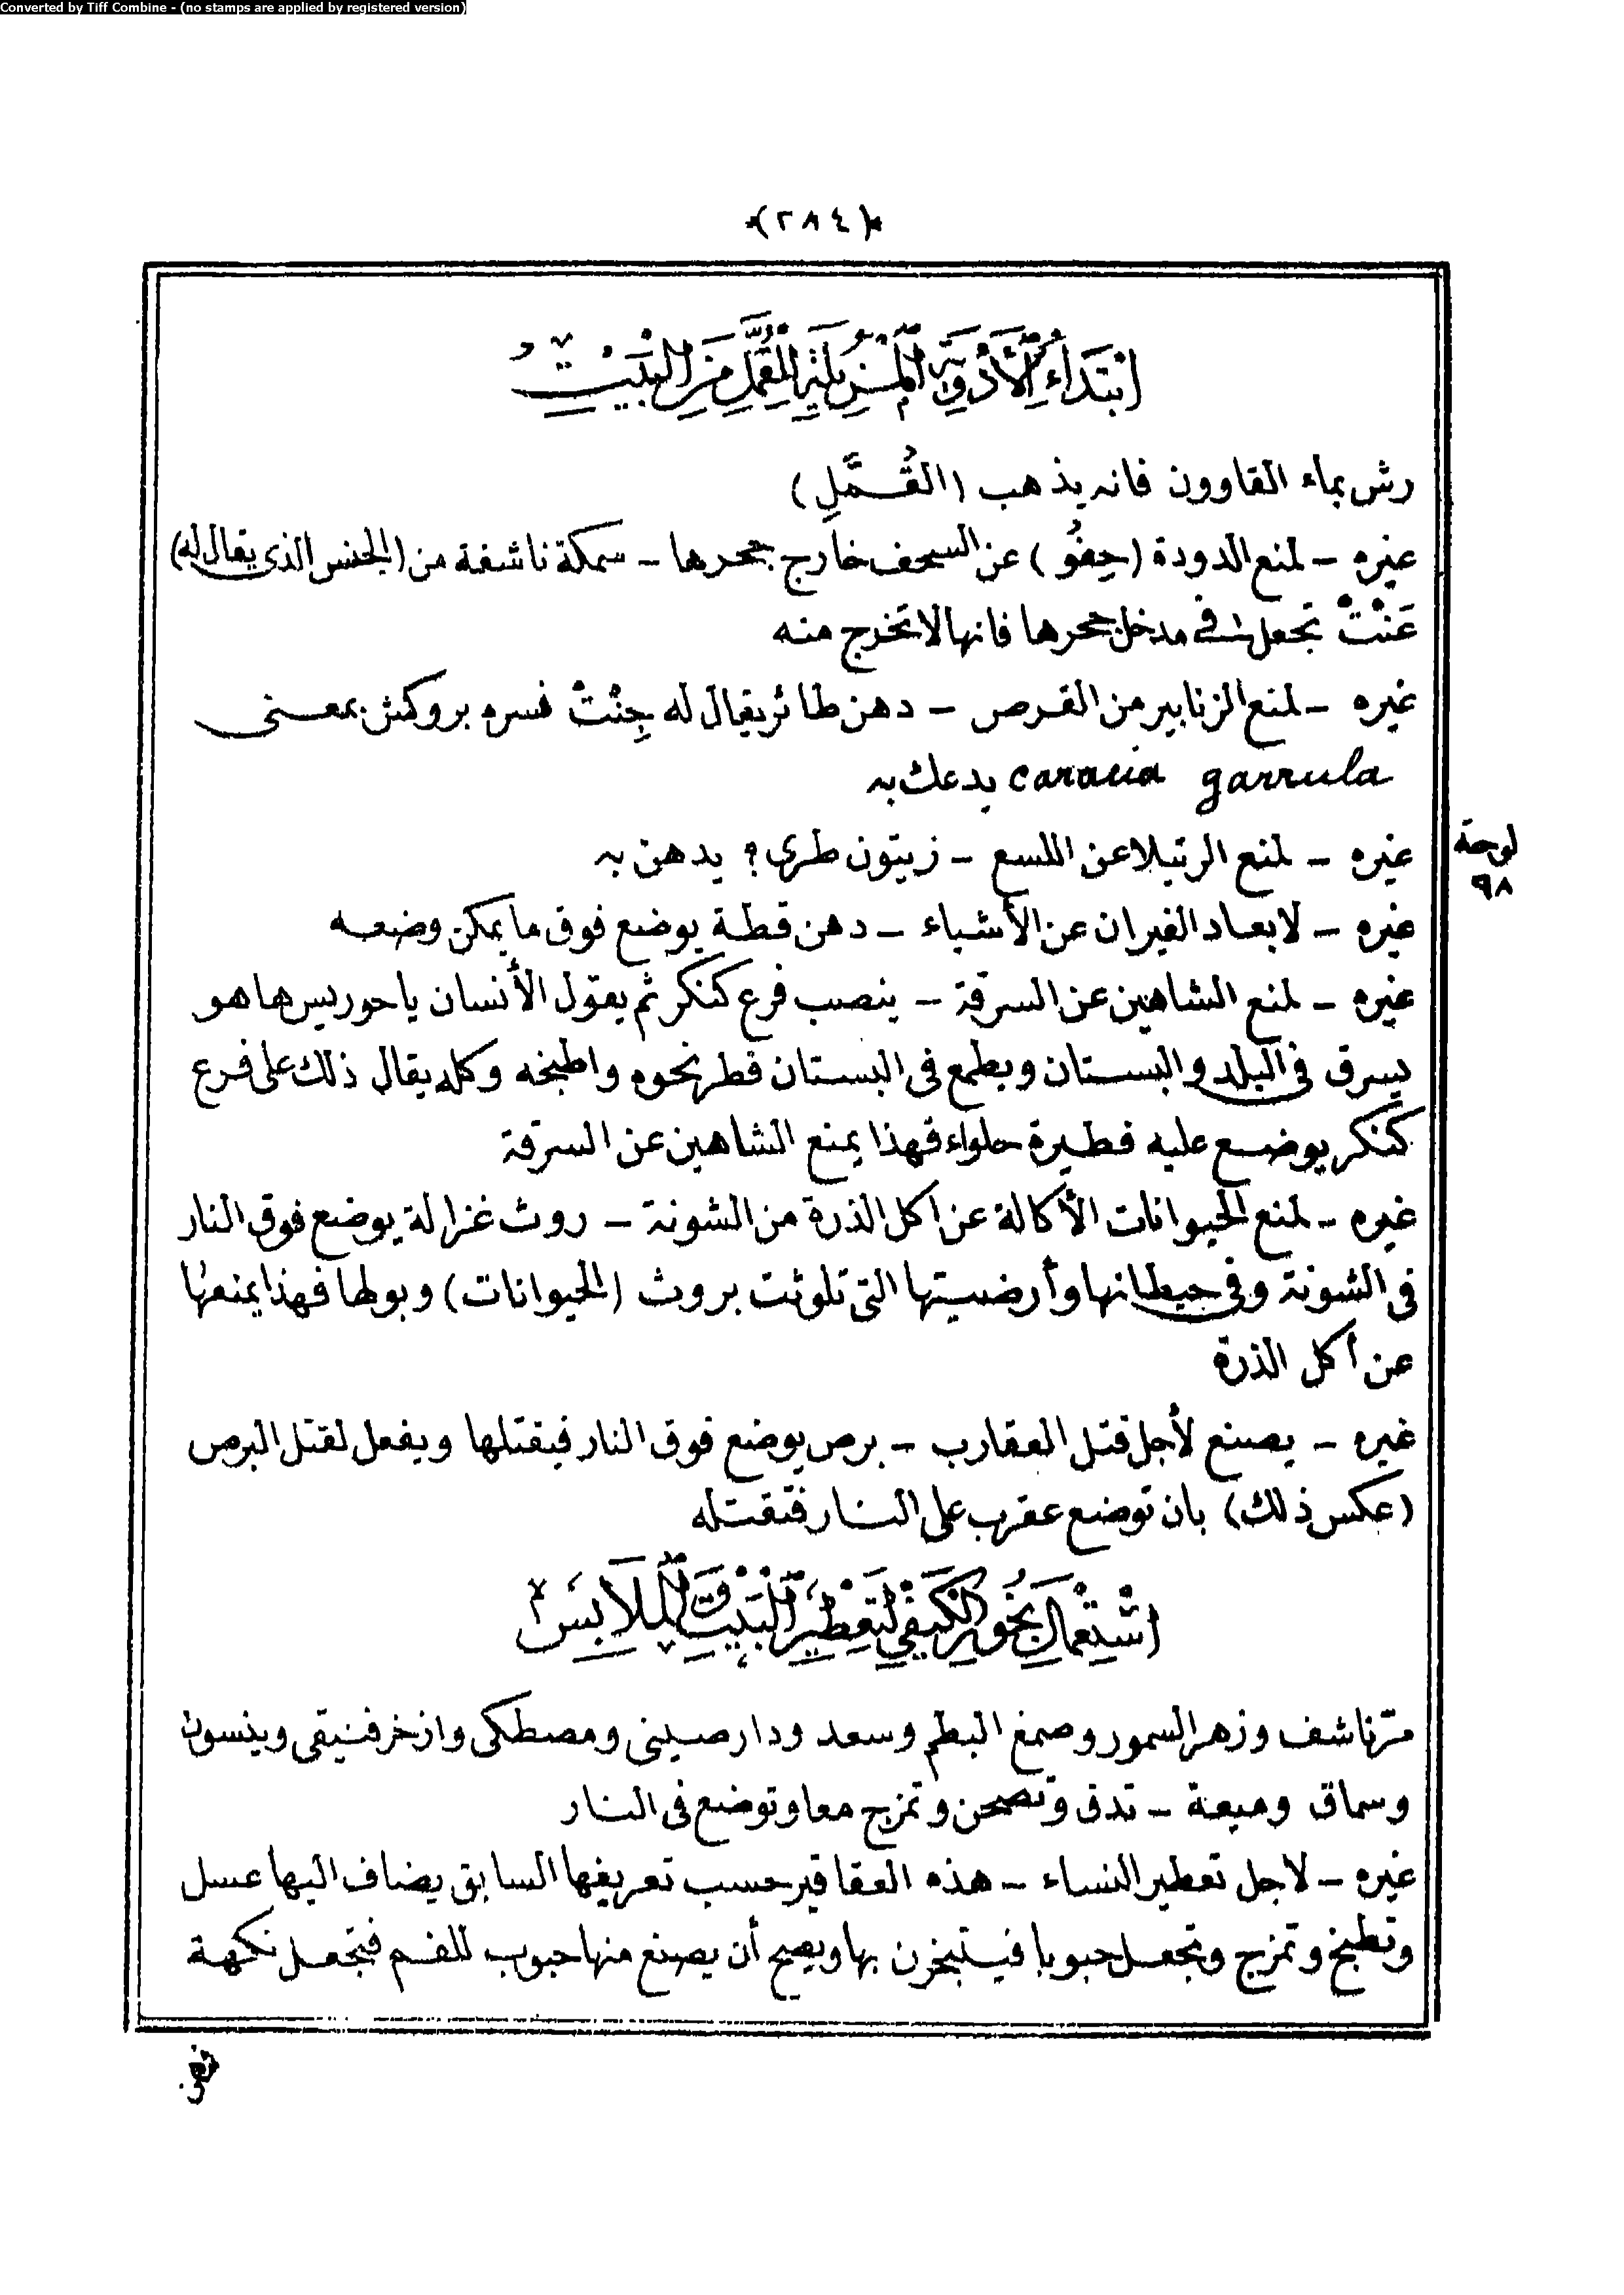 Converted by Tiff Combine - (no stamps are applied by registered version)
*(٢٨٤)*
ابْتَدَاءُ الْأَدْوِيَةِ الْمُزِيلَةِ لِلْقُمَّلِ مِنَ الْبَيْتِ
رش بماء القاوون فانه يذهب (القُمَّل)
غيره – لمنع الدودة (حِفوُ) عن السحف خارج جحرها – سمكة ناشفة من (الجنس الذى يقال له)
عَنْتْ تجعل فى مدخل جحرها فانها لا تخرج منه
غيره – لمنع الزنابير من القرص – دهن طائر يقال له جِنْتْ فسره بروكش بمعنى
garrula caracia يدعك به
لوحة
٩٨
غيره – لمنع الرتيلا عن اللسع – زيتون طرى؟ يدهن به
غيره – لابعاد الفيران عن الأشياء – دهن قطة يوضع فوق ما يمكن وضعه
غيره – لمنع الشاهين عن السرقة – ينصب فرع كنكر ثم يقول الأنسان يا حوريس ها هو
يسرق فى البلد والبستان ويطمع فى البستان فطر نحوه واطبخه وكله يقال ذلك على فرع
كنكر يوضع عليه فطيرة حلواء فهذا يمنع الشاهين عن السرقة
غيره – لمنع الحيوانات الأكالة عن اكل الذرة من الشونة – روث غزالة يوضع فوق النار
فى الشونة وفى حيطانها وأرضيتها التى تلوثت بروث (الحيوانات) وبولها فهذا يمنعها
عن أكل الذرة
غيره – يصنع لأجل قتل العقارب – برص يوضع فوق النار فيقتلها ويفعل لقتل البرص
(عكس ذلك) بان توضع عقرب على النار فتقتله
اسْتِعْمَالُ بَخُورِ الْكَيْفِي لِتَعْطِيرِ الْبَيْتِ وَالْمَلَابِسِ
مرّ ناشف وزهر السمور وصمغ البطم وسعد ودارصينى ومصطكى واذخر فنيقى وينسون
وسماق وميعة – تدق وتصحن وتمزج معا وتوضع فى النار
غيره – لاجل تعطير النساء – هذه العقاقير حسب تعريفها السابق يضاف اليها عسل
وتطبخ وتمزج وتجعل حبوبا فيتبخرن بها ويصح أن يصنع منها حبوب للفم فتجعل نكهة